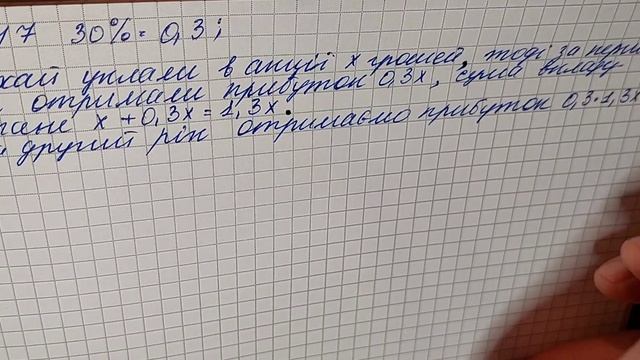 17 30% = 0,3;
хай уклали в акції х грошей, тоді за
отримали прибуток 0,3х, сума вкладу
стане х + 0,3х = 1,3х.
другий рік отримаємо прибуток 0,3·1,3х